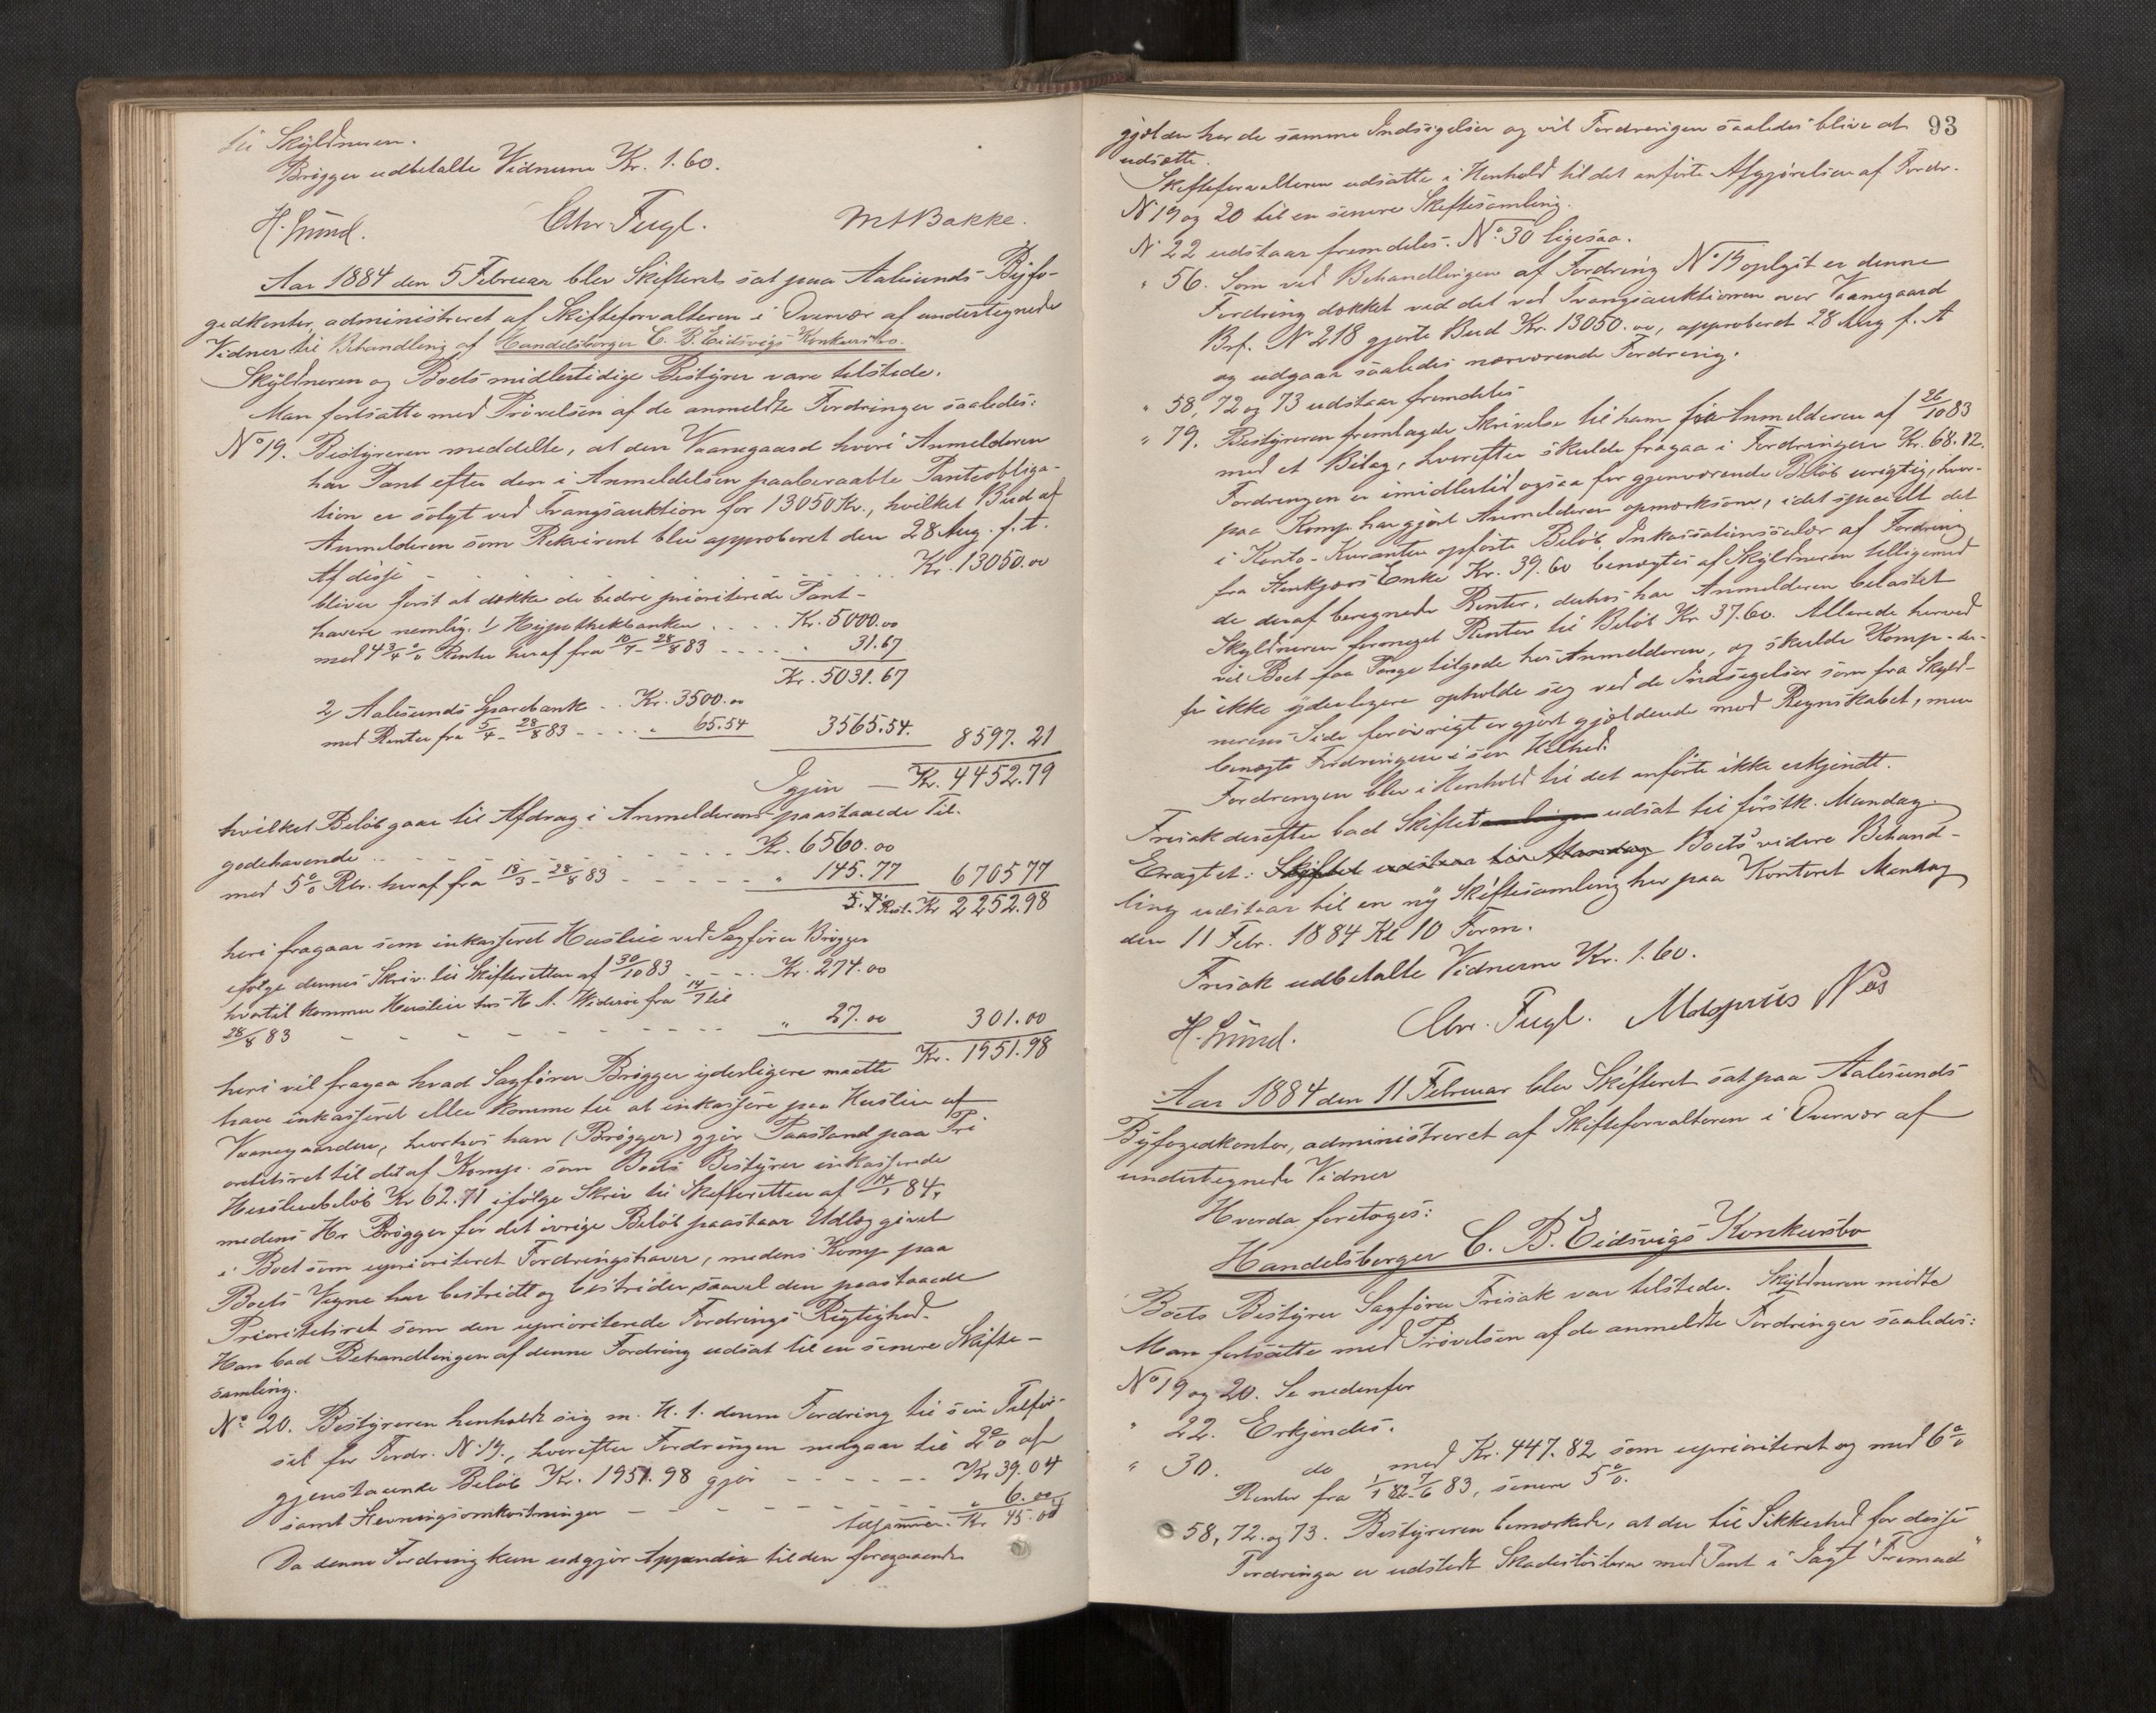 til Skyldneren.
Brøgger udbetalte Vidnerne Kr. 1.60.
H. Lund. Chr. Fugl. M A Bakke.
Aar 1884 den 5 Februar blev Skifteret sat paa Aalesunds Byfo-
gedkontor, administreret af Skifteforvalteren i Overvær af undertegnede
Vidner til Behandling af Handelsborger C. B. Eidsvigs Konkursbo.
Skyldneren og Boets midlertidige Bestyrer vare tilstede.
Man fortsatte med Prøvelsen af de anmeldte Fordringer saaledes:
No 19. Bestyreren meddelte, at den Vaanegaard hvori Anmelderen
har Pant efter den i Anmeldelsen paaberaabte Panteobliga-
tion er solgt ved Tvangsauktion for 13050 Kr., hvilket Bud af
Anmelderen som Rekvirent blev approberet den 28 Aug. f. A.
Af disse - - - - Kr. 13050.00
bliver først at dække de bedre prioriterede Pant-
havere nemlig. 1/ Hypothekbanken . . . . Kr. 5000.00
med 4 3/4 % Renter heraf fra 10/7 - 28/8 83 - - - - " 31.67
Kr. 5031.67
2/ Aalesunds Sparebank . . Kr. 3500.00
med Renter fra 5/4 - 28/8 83 - - - - " 65.54 3565.54. 8597.21
Igjen — Kr. 4452.79
hvilket Beløb gaar til Afdrag i Anmelderens paastaaede Til-
godehavende . . - - - - Kr. 6560.00
med 5 % Rtr. heraf fra 18/3 - 28/8 83 - - - - " 145.77 6705 77
Rest. Kr 2252.98
heri fragaar som inkasseret Husleie ved Sagfører Brøgger
ifølge dennes Skriv. til Skifteretten af 30/10 83 - - - - Kr. 274.00
hvortil kommer Husleie hos H. A. Widerøe fra 14/7 til
28/8 83 - - - - " 27.00 301.00
Kr. 1951.98
heri vil fragaa hvad Sagfører Brøgger yderligere maatte
have inkasseret eller komme til at inkassere paa Husleie af
Vaanegaarden, hvorhos han (Brøgger) gjør Paastand paa Pri
oritetsret til det af Komp. som Boets Bestyrer inkasserede
Husleiebeløb Kr 62.71 ifølge Skriv til Skifteretten af 14/1 84,
medens Hr Brøgger for det øvrige Beløb paastaar Udlæg givet
i Boet som uprioriteret Fordringshaver, medens Komp paa
Boets Vegne har bestridt og bestrider saavel den paastaaede
Prioritetsret som den uprioriterede Fordrings Rigtighed.
Han bad Behandlingen af denne Fordring udsat til en senere Skifte-
samling.
No 20. Bestyreren henholdt sig m. H. t. denne Fordring til sin Tilfør-
sel for Fordr. No 19., hvorefter Fordringen nedgaar til 2 % af
gjenstaaende Beløb Kr. 1951.98 gjør - - - - Kr 39.04
samt Hævningsomkostninger - - - - " 6.00
tilsammen. Kr 45.04
Da denne Fordring kun udgjør Appendix til den foregaaende
93
gjælder her de samme Indsigelser og vil Fordringen saaledes blive at
udsætte.
Skifteforvalteren udsatte i Henhold til det anførte Afgjørelsen af Fordr.
No 19 og 20 til en senere Skiftesamling.
No 22 udstaar fremdeles. No 30 ligesaa.
" 56. Som ved Behandlingen af Fordring No 19 oplyst er denne
Fordring dækket ved det ved Tvangsauktionen over Vaanegaard
Brf. No 218 gjorte Bud Kr. 13050.00, approberet 28 Aug f. A
og udgaar saaledes nærværende Fordring.
" 58, 72 og 73 udstaar fremdeles
" 79. Bestyreren fremlagde Skrivelse til ham fra Anmelderen af 26/10 83
med et Bilag, hvorefter skulde fragaa i Fordringen Kr. 68.12.
Fordringen er imidlertid ogsaa for gjenværende Beløb urigtig, hvor-
paa Komp. har gjort Anmelderen opmærksom, idet specielt det
i Konto-Kuranten opførte Beløb Inkassationssalær af Fordring
fra Enke Kr. 39.60 benegtes af Skyldneren tilligemed
de deraf beregnede Renter, derhos har Anmelderen belastet
Skyldneren formeget Renter til Beløb Kr 37.60. Allerede herved
vil Boet faa Penge tilgode hos Anmelderen, og skulde Komp. der-
for ikke yderligere opholde sig ved de Indsigelser som fra Skyld-
nerens Side forøvrigt er gjort gjældende mod Regnskabet, men
benegte Fordringen i sin Helhed.
Fordringen blev i Henhold til det anførte ikke erkjendt.
Frisak derefter bad Skiftet udsat til førstk. Mandag.
Eragtet: Skiftet udstaar til Mandag Boets videre Behand-
ling udstaar til en ny Skiftesamling her paa Kontoret Mandag
den 11 Febr. 1884 Kl 10 Form.
Frisak udbetalte Vidnerne Kr. 1.60.
H. Lund. Chr. Fugl. Næs
Aar 1884 den 11 Februar blev Skifteret sat paa Aalesunds
Byfogedkontor, administreret af Skifteforvalteren i Overvær af
undertegnede Vidner
Hvorda foretoges:
Handelsborger C. B. Eidsvigs Konkursbo
Boets Bestyrer Sagfører Frisak var tilstede. Skyldneren mødte
Man fortsatte med Prøvelsen af de anmeldte Fordringer saaledes:
No 19 og 20. Se nedenfor
" 22. Erkjendes.
" 30. do med Kr. 447.82 som uprioriteret og med 6 %
Renter fra 1/1 82 - 7/6 83, senere 5 %.
" 58, 72. og 73. Bestyreren bemærkede, at der til Sikkerhed for disse
Fordringer er udstedt Skadesløsbrev med Pant i Jagt "Fremad"